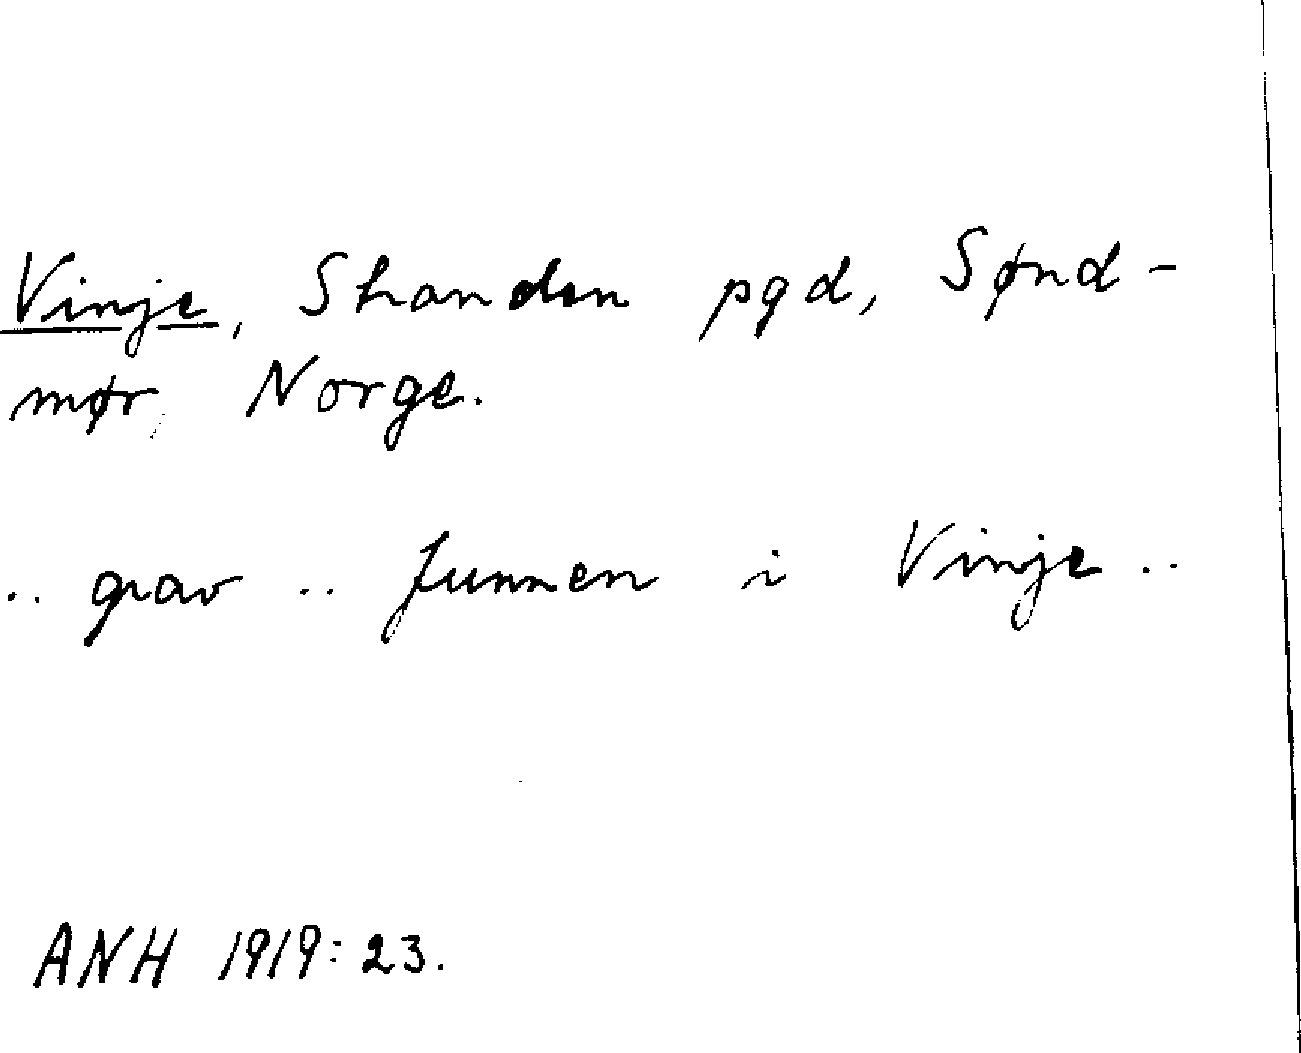 Vinje, Stranden pgd, Sønd-
mør, Norge.
.. grav .. funnen i Vinje ..
ANH 1919: 23.